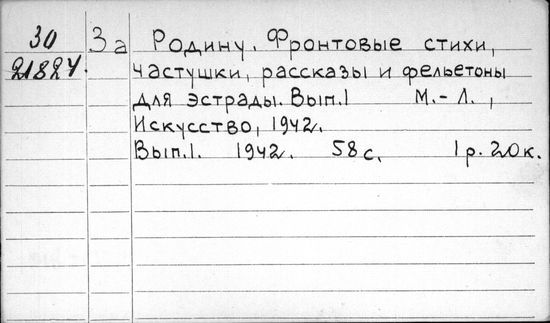 30 За Родину. Фронтовые стихи,
21824. частушки, рассказы и фельетоны
для эстрады. Вып.1 М.-Л.,
Искусство, 1942.
Вып.1. 1942. 58с. 1р.20к.